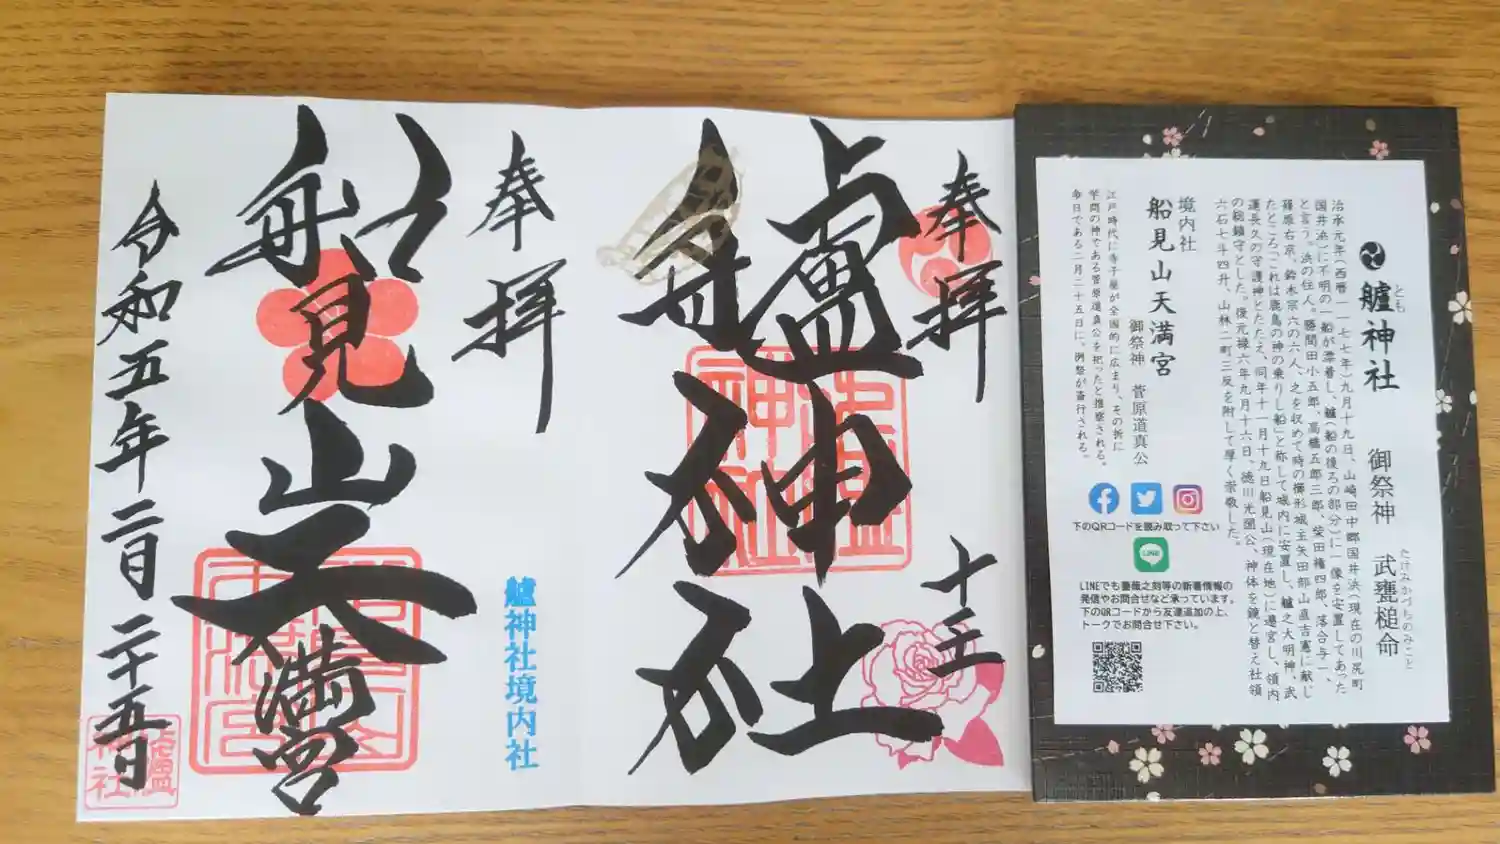 艫神社
とも
御祭神　武甕槌命
たけみかづちのみこと
治承元年(西暦一一七七年)九月十九日、山崎田中郷国井浜(現在の川尻町
国井浜)に不明の一船が漂着し、艫(船の後ろの部分)に一像を安置してあった
と言う。浜の住人。勝間田小五郎、高橋五郎三郎、柴田権四郎、落合与一、
篠原右京、鈴木宗六の六人、之を収めて時の櫛形城主矢田部山直吉憲に献じ
たところ「これは鹿島の神の乗りし船」と称して城内に安置し、艫之大明神、武
運長久の守護神とたたえ、同年十一月十九日船見山(現在地)に遷宮し、領内
の総鎮守とした。後元禄六年九月十六日、徳川光圀公、神体を鏡と替え社領
六石七斗四升、山林二町三反を附して厚く崇敬した。
境内社
船見山天満宮
御祭神　菅原道真公
江戸時代に寺子屋が全国的に広まり、その折に
学問の神である菅原道真公を祀ったと推察される。
今日である二月二十五日に。例祭が斎行される。
下のQRコードを読み取って下さい
LINE
LINEでも薔薇之刻等の新着情報の
発信やお問合せなど承っています。
下のQRコードから友達追加の上、
トークでお問合せ下さい。
奉拝
十王
艫神社
奉拝
艫神社境内社
船見山天満宮
令和五年二月二十五日